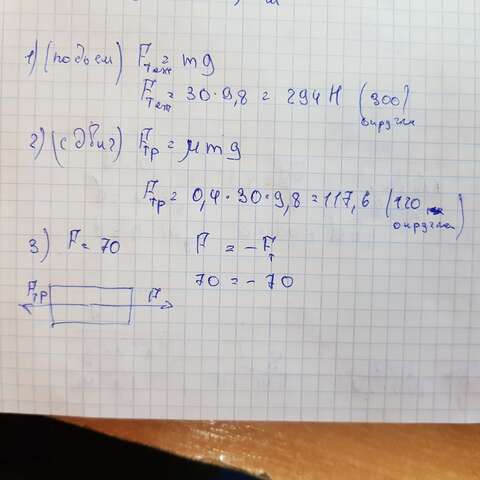 1) (подьем) Fтяж = mg
Fтяж = 30·9,8 = 294 Н (300)
округл
2) (сдвиг) Fтр = μmg
Fтр = 0,4·30·9,8 = 117,6 (120
округлл)
3) F = 70 F = -Fт
70 = -70
Fтр F